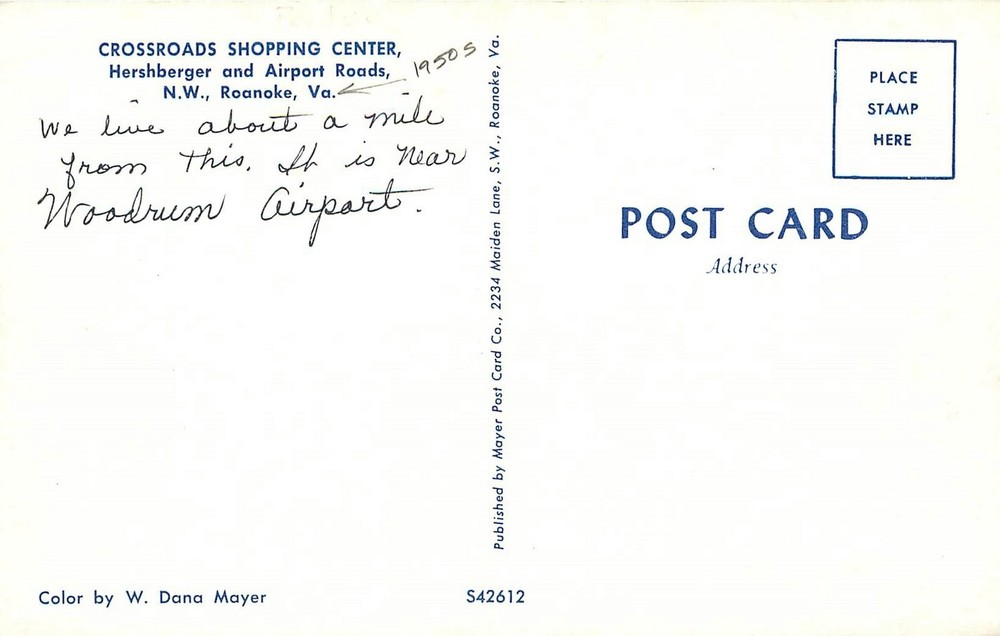 CROSSROADS SHOPPING CENTER,
Hershberger and Airport Roads,
N.W., Roanoke, Va.
1950s
We live about a mile
from this. It is near
Woodrum Airport.
Published by Mayer Post Card Co., 2234 Maiden Lane, S.W., Roanoke, Va.
PLACE
STAMP
HERE
POST CARD
Address
Color by W. Dana Mayer
S42612